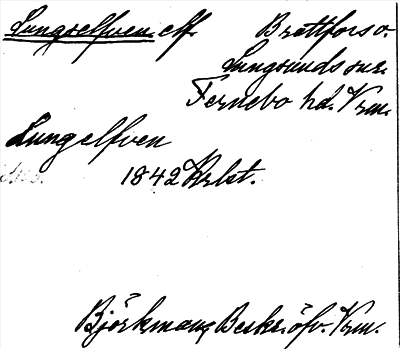 Lungselfven elf. Brattfors o.
Lungsunds snr.
Fernebo hd. Vrm.
Lungelfven
1842 Arbt.
Björkman, Beskr. öfv. Vrm.